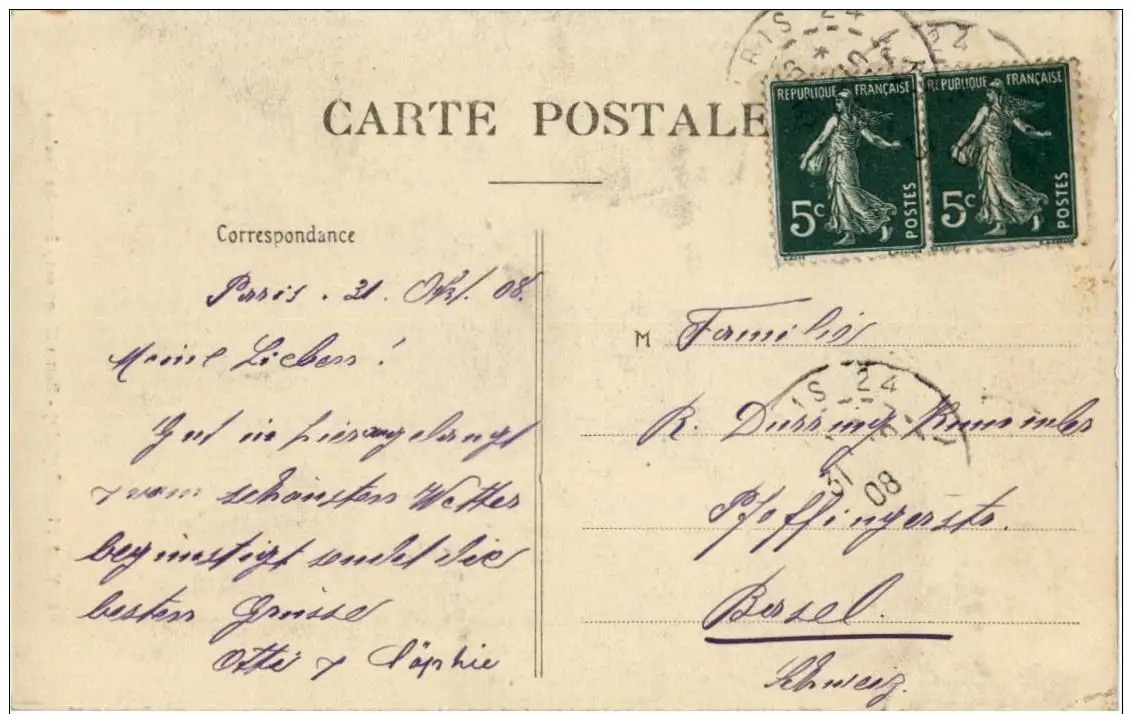 CARTE POSTALE
RIS 24
REPUBLIQUE FRANÇAISE
5c
POSTES
REPUBLIQUE FRANÇAISE
5c
POSTES
Correspondance
Paris. 31. Okt. 08.
Meine Lieben!
Gut in hier angelangt
& vom schönsten Wetter
begünstigt sendet die
besten Grüsse
Otti & Sophie
M Familie
R. Durring
Pfeffingerstr.
Basel.
Schweiz.
IS 24
31
08